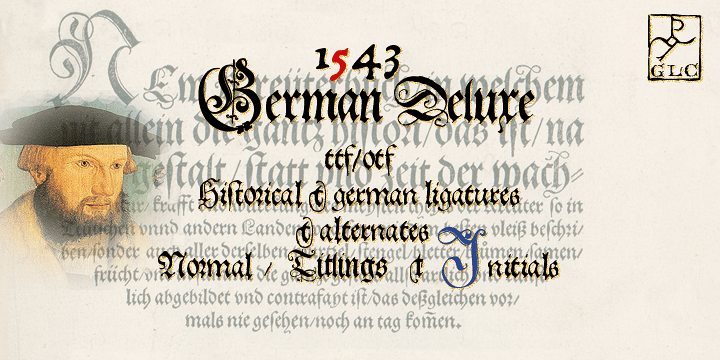 1543
GLC
German Deluxe
ttf/otf
Historical & german ligatures
& alternates
Normal / Titlings & Initials
welchem
nit allein die gantz histori/das ist/na
gestalt/statt zeit der wach=
krafft so in
vnnd andern Landen vleiß beschri=
ben/sonder auch aller derselben stengel/bletter/blumen/somen/
frücht/
lich abgebildet vnd contrafayt ist/das deßgleichen vor/
mals nie gesehen/noch an tag kom̃en.